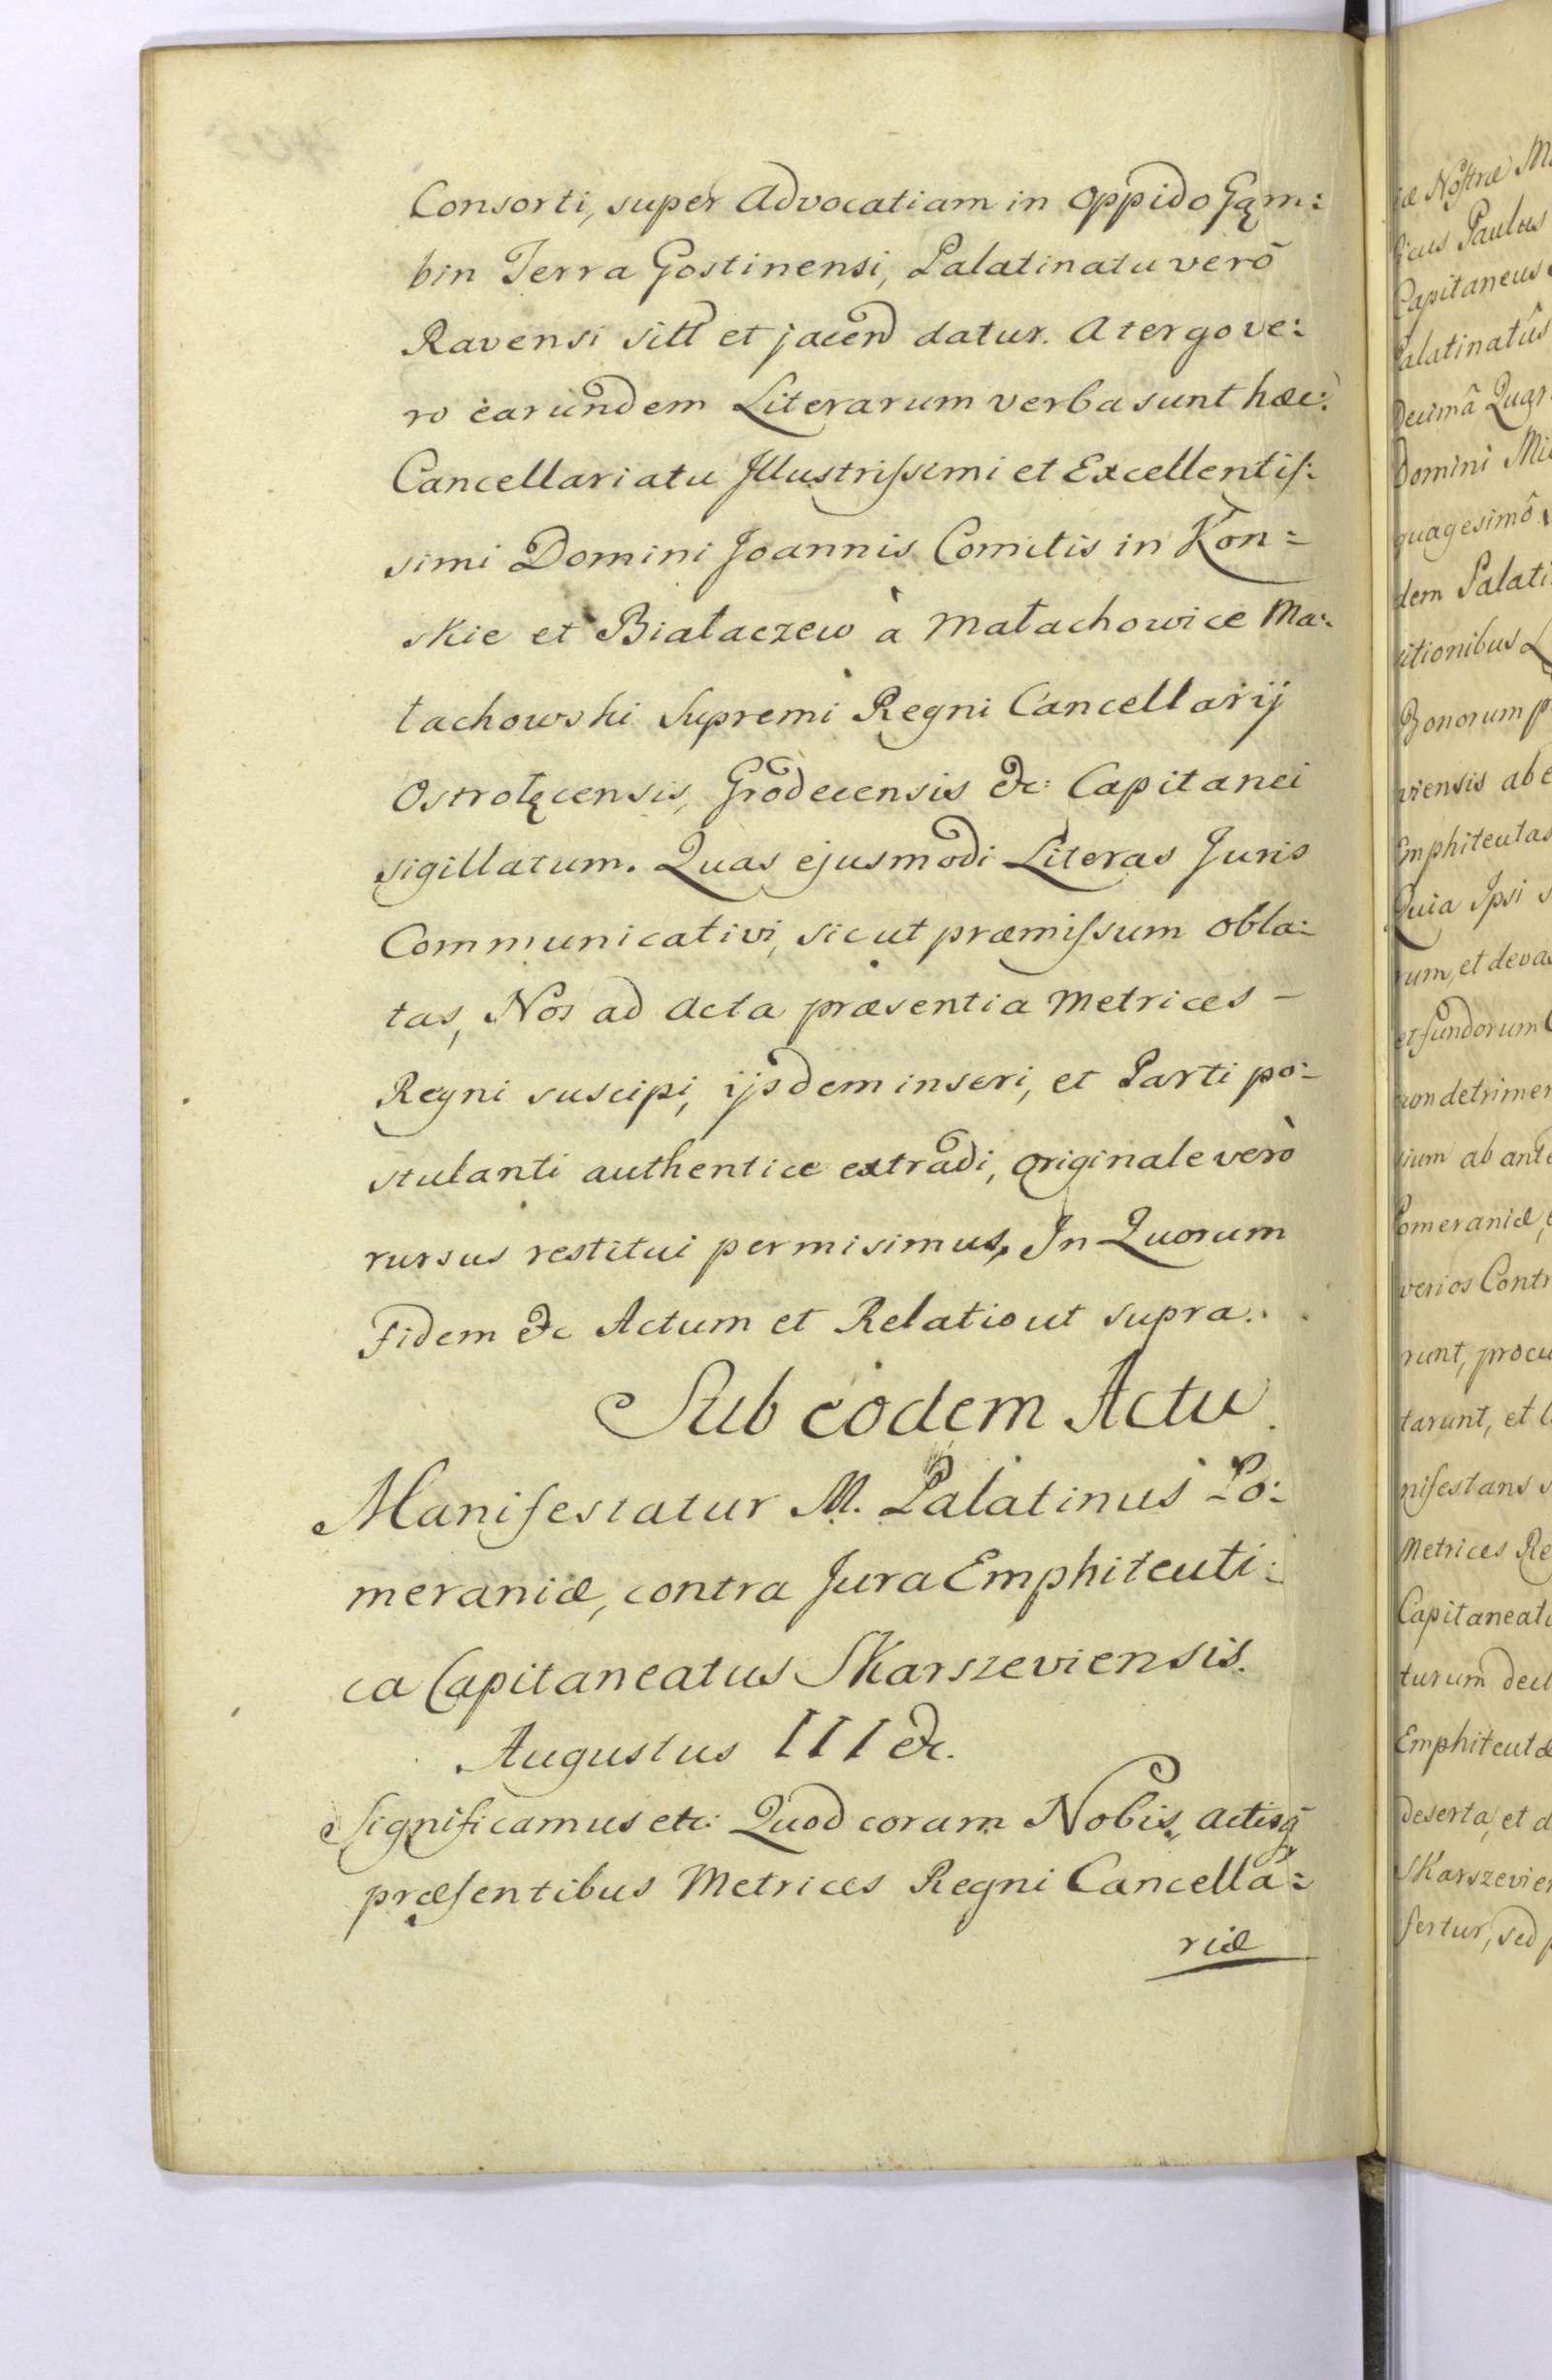 Consorti, super Advocatiam in Oppido Gąm:
bin Terra Gostinensi, Palatinatu verò
Ravensi sitt et jacen datur. A tergo ve:
ro earundem Literarum verba sunt hæc:
Cancellariatu Jllustrissimi et Excellentis:
simi Domini Joannis Comitis in Kon=
skie et Białaczew à Małachowice Ma:
łachowski Supremi Regni Cancellarij
Ostrołęcensis, Grodecensis &c: Capitanei
sigillatum. Quas ejusmodi Literas Juris
Communicativi, sicut præmissum obla:
tas, Nos ad Acta præsentia Metrices –
Regni suscipi, ijsdem inseri, et Parti po:
stulanti authentice extradi, originale verò
rursus restitui permisimus, Jn Quorum
Fidem &c Actum et Relatio ut supra.
Sub eodem Actu
Manifestatur M. Palatinus Po:
meraniæ, contra Jura Emphiteuti:
ca Capitaneatus Skarszeviensis.
Augustus III &c.
Significamus etc: Quod coram Nobis, actisq̃
præsentibus Metrices Regni Cancella:
riæ
Nostræ
Paulus
Capitaneus
Palatinatûs
Decimâ Quar
Domini Mi
quagesimô
dem Palati
itionibus L
Bonorum p
viensis ab e
Emphiteutas
Quia Ipsi s
rum, et deva
et fundorum
non detrimen
ium ab ante
Pomeraniæ,
verios Contr
runt, procu
tarunt, et l
nifestans s
Metrices Re
Capitaneatu
turum decl
Emphiteutæ
deserta, et d
Skarszevien
fertur, sed p